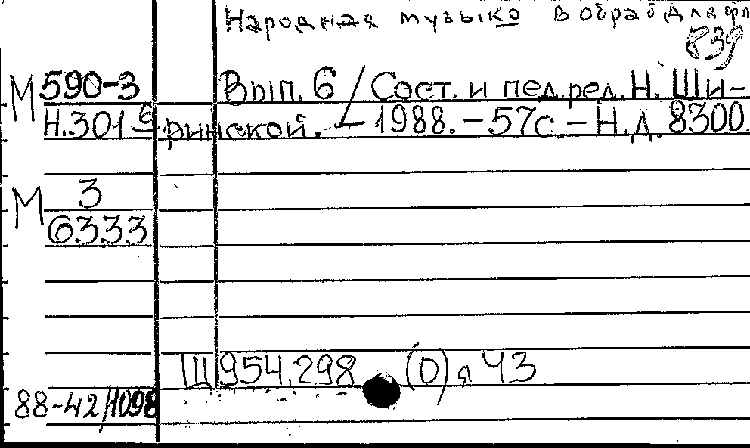 Народная музыка в обраб для фл
839
М 590-3 Вып. 6 / Сост. и пед.ред. Н. Ши-
Н.301 6 ринской. – 1988. – 57с. – Н.д. 8300
М 3
6333
Щ954.298 (0)я ЧЗ
88-42/1098